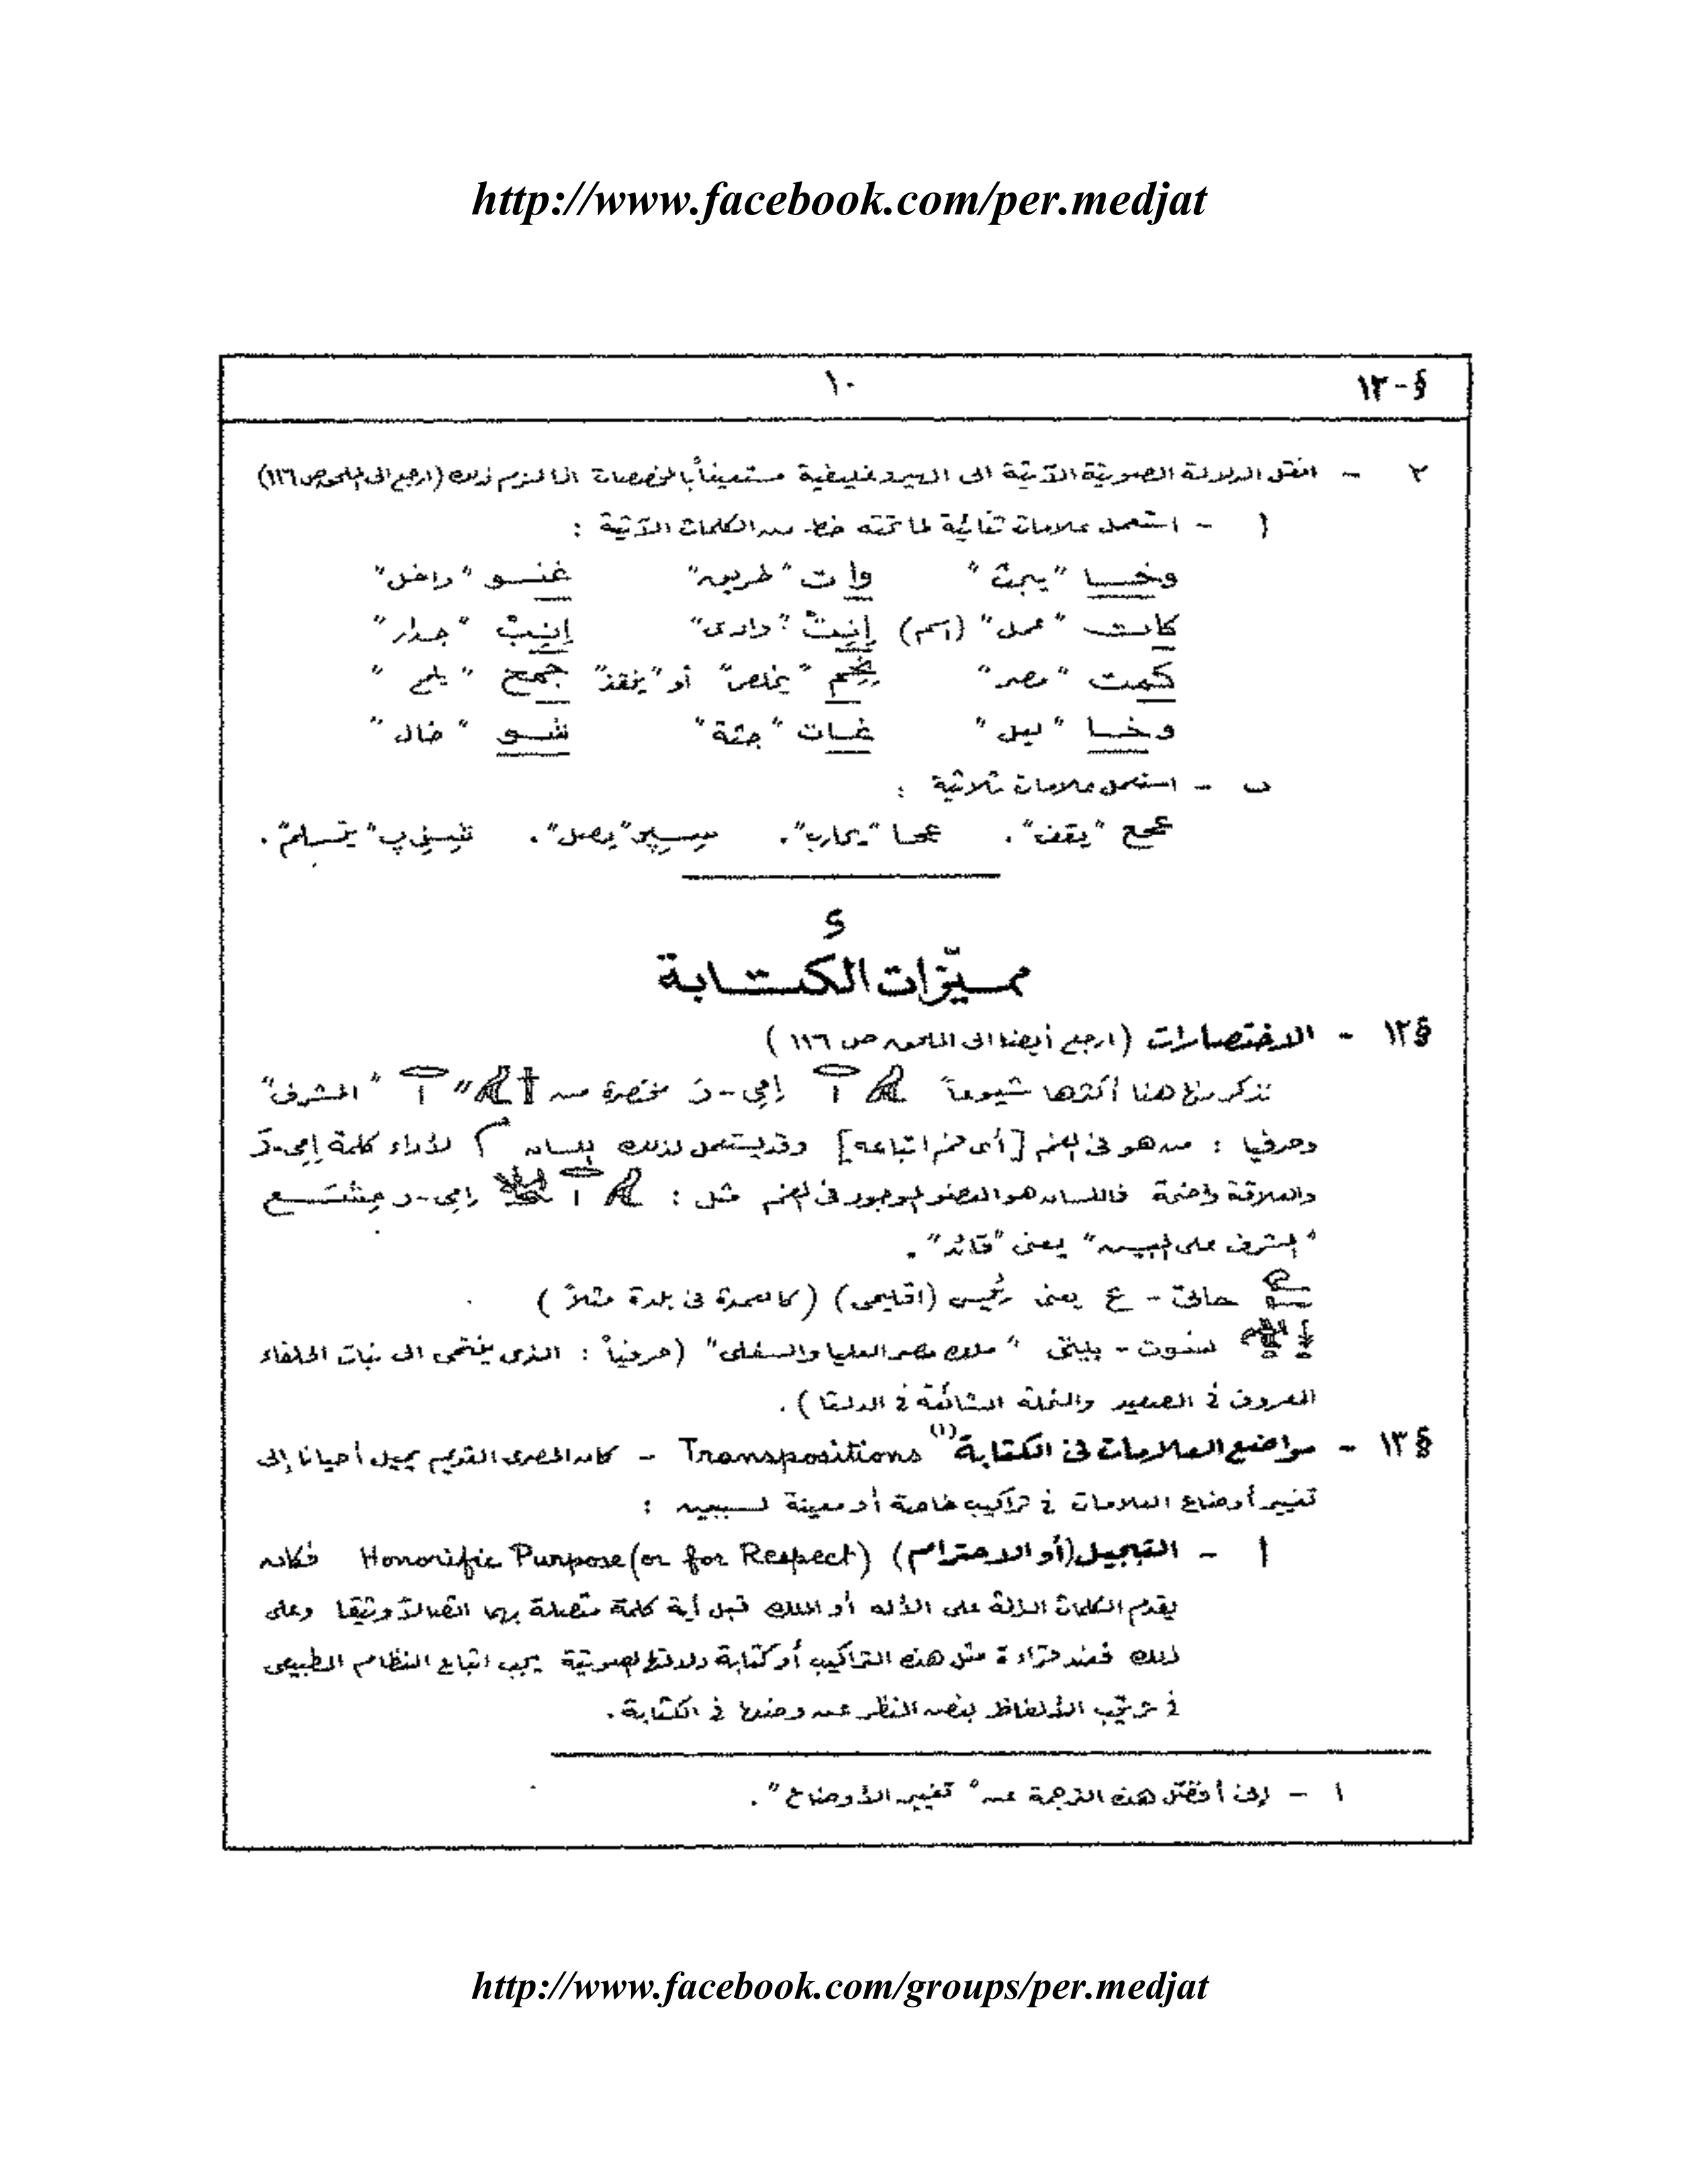 http://www.facebook.com/per.medjat
§-١٣ ١٠
٢ - انقل الدلالة الصوتية الآتية الى الهيروغليفية مستعيناً بالمخصصات اذا لزم ذلك (ارجع الى الملحق ص ١١٦)
أ - استعمل علامات ثنائية لما تحته خط من الكلمات الآتية :
وخـا "يبحث" وات "طريق" غنـو "داخل"
كات "عمل" (اسم) إنت "وادى" إنب "جدار"
كمت "مصر" نحم "يخلص" أو "ينقذ" جمح "يلمح"
وخـا "ليل" غـات "جثة" شـو "خال"
ب - استعمل علامات ثلاثية :
عحع "يقف". عحا "يحارب". "يصل". "يتسلم".
و
مميّزات الكتابة
§١٢ - الاختصارات (ارجع أيضا الى الملحق ص ١١٦)
نذكر منها هنا أكثرها شيوعاً إمى-ر مختصرة من "المشرف"
وحرفيا : من هو فى الفم [أى فم اتباعه] وقد يستعمل لذلك اللسان لأداء كلمة إمى-ر
والعلاقة واضحة فاللسان هو العضو الموجود فى الفم مثل : إمى-ر مشـع
"المشرف على الجيش" يعنى "قائد".
حاتى - ع يعنى رئيس (اقليمى) (كالعمدة فى بلدة مثلاً)
نسوت - بيتى "ملك مصر العليا والسفلى" (حرفياً : الذى ينتمى الى نبات الحلفاء
المعروف فى الصعيد والنحلة الشائعة فى الدلتا).
§١٣ - مواضع العلامات فى الكتابة(١) Transpositions - كان المصرى القديم يميل أحيانا إلى
تغيير أوضاع العلامات فى تراكيب خاصة أو معينة لسببين :
أ - التبجيل (أو الاحترام) Honorific Purpose (or for Respect) فكان
يقدم الكلمات الدالة على الأله أو الملك قبل أية كلمة متصلة بهما اتصالا وثيقا وعلى
ذلك فعند قراءة مثل هذه التراكيب أو كتابة دلالتها الصوتية يجب اتباع النظام الطبيعى
فى ترتيب الألفاظ بغض النظر عن وضعها فى الكتابة.
١ - إنى أفضل هذه الترجمة عن "تغيير الأوضاع".
http://www.facebook.com/groups/per.medjat